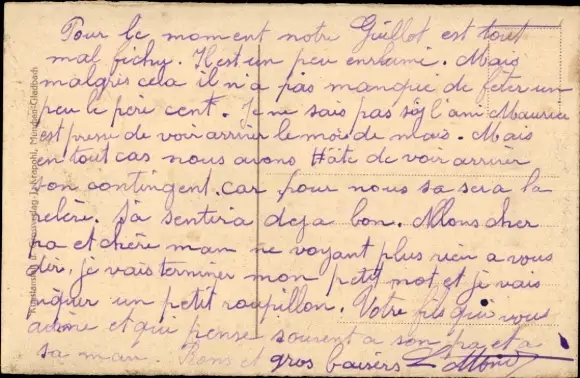 Pour le moment notre Guillot est tout
mal fichy. Il est un peu enrhumé. Mais
malgrés cela il n'a pas manqué de fêter un
peu le père cent. Je ne sais pas si l'ami Maurice
est pressé de voir arriver le mois de mais. Mais
en tout cas nous avons Hâte de voir arriver
son contingent. car pour nous sa sera la
relère. Sa sentira deja bon. Allons cher
pa et chère man ne voyant plus rien a vous
dir, je vais terminer mon petit mot, et je vais
piquer un petit roupillon. Votre fils qui vous
adore et qui pense souvent a son pa et a
sa man. Bons et gros baisers
Kunstanstalt u. Grossverlag J. Krapohl, München-Gladbach